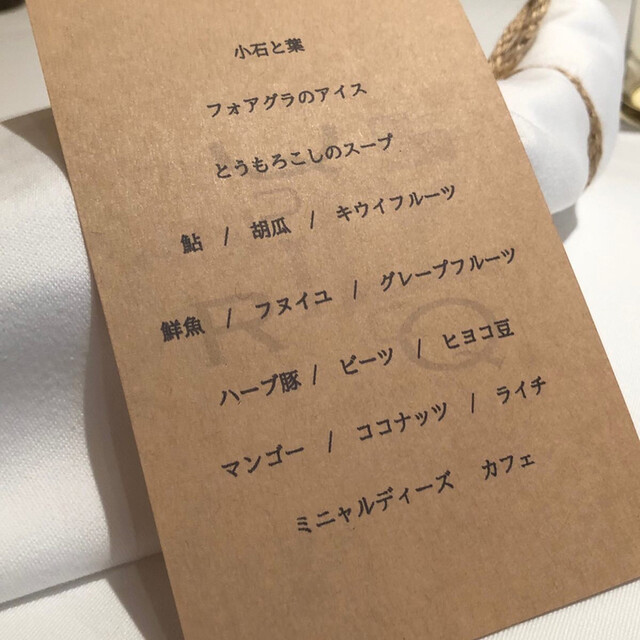 小石と葉
フォアグラのアイス
とうもろこしのスープ
鮎 / 胡瓜 / キウイフルーツ
鮮魚 / フヌイユ / グレープフルーツ
ハーブ豚 / ビーツ / ヒヨコ豆
マンゴー / ココナッツ / ライチ
ミニャルディーズ カフェ